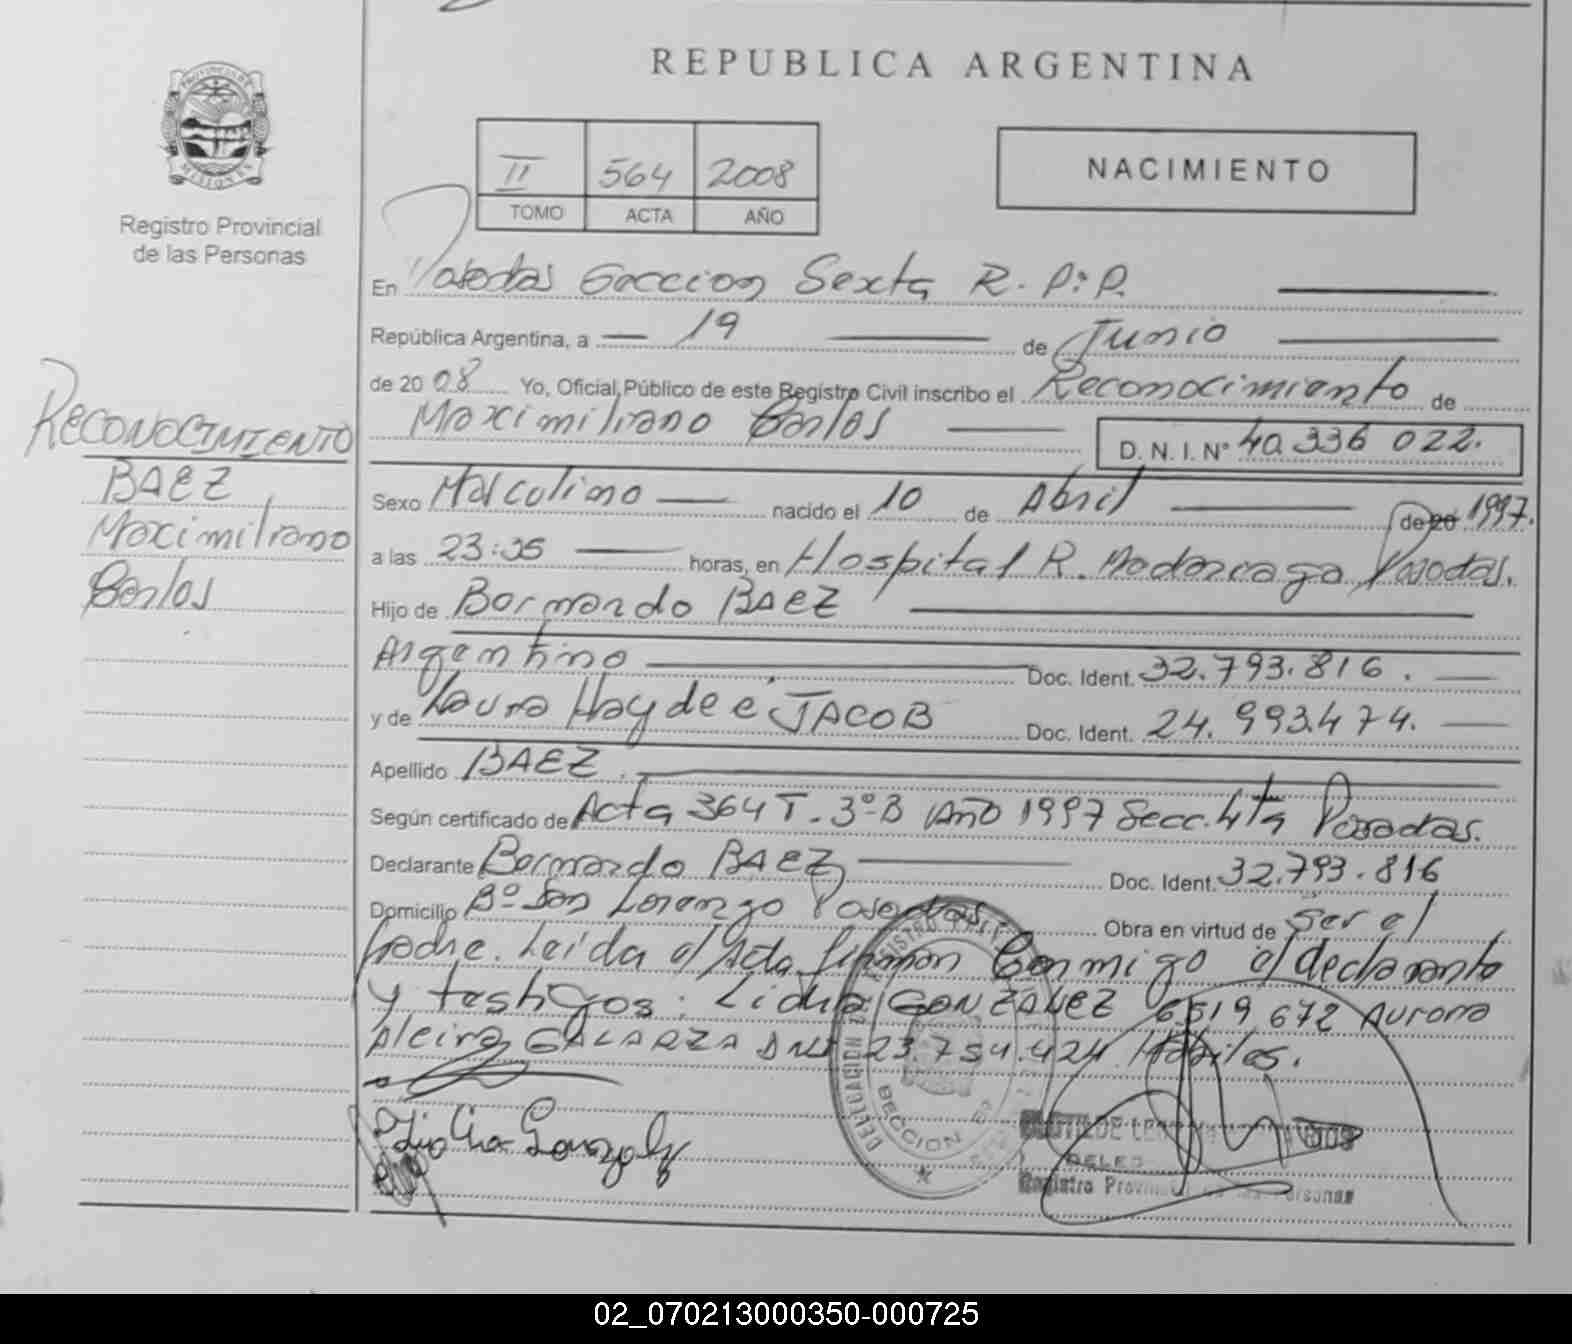 REPUBLICA ARGENTINA
PROVINCIA DE
MISIONES
Registro Provincial
de las Personas
II 564 2008
TOMO ACTA AÑO
NACIMIENTO
En Posadas Seccion Sexta R. P. P.
República Argentina, a 19 de Junio
de 2008 Yo, Oficial Público de este Registro Civil inscribo el Reconocimiento de
Maximiliano Carlos D. N. I. Nº 40.336 022.
RECONOCIMIENTO
BAEZ
Maximiliano
Carlos
Sexo Masculino nacido el 10 de Abril de 20 1997.
a las 23:35 horas, en Hospital R. Madariaga Posadas.
Hijo de Bernardo BAEZ
Argentino Doc. Ident. 32.793.816.
y de Laura Haydeé JACOB Doc. Ident. 24.993.474.
Apellido BAEZ.
Según certificado de Acta 364 T. 3º B Año 1997 Secc. 4ta Posadas.
Declarante Bernardo BAEZ Doc. Ident. 32.793.816
Domicilio Bº San Lorenzo Posadas. Obra en virtud de ser el
Padre. Leída el Acta firman Conmigo el declarante
y testigos: Lidia GONZALEZ 6519 672 Aurora
Alcira GALARZA DNI 23.754.424 Hábiles.
DELEGACION
SECCION
DELEG
Registro Provincial de las Personas
02_070213000350-000725